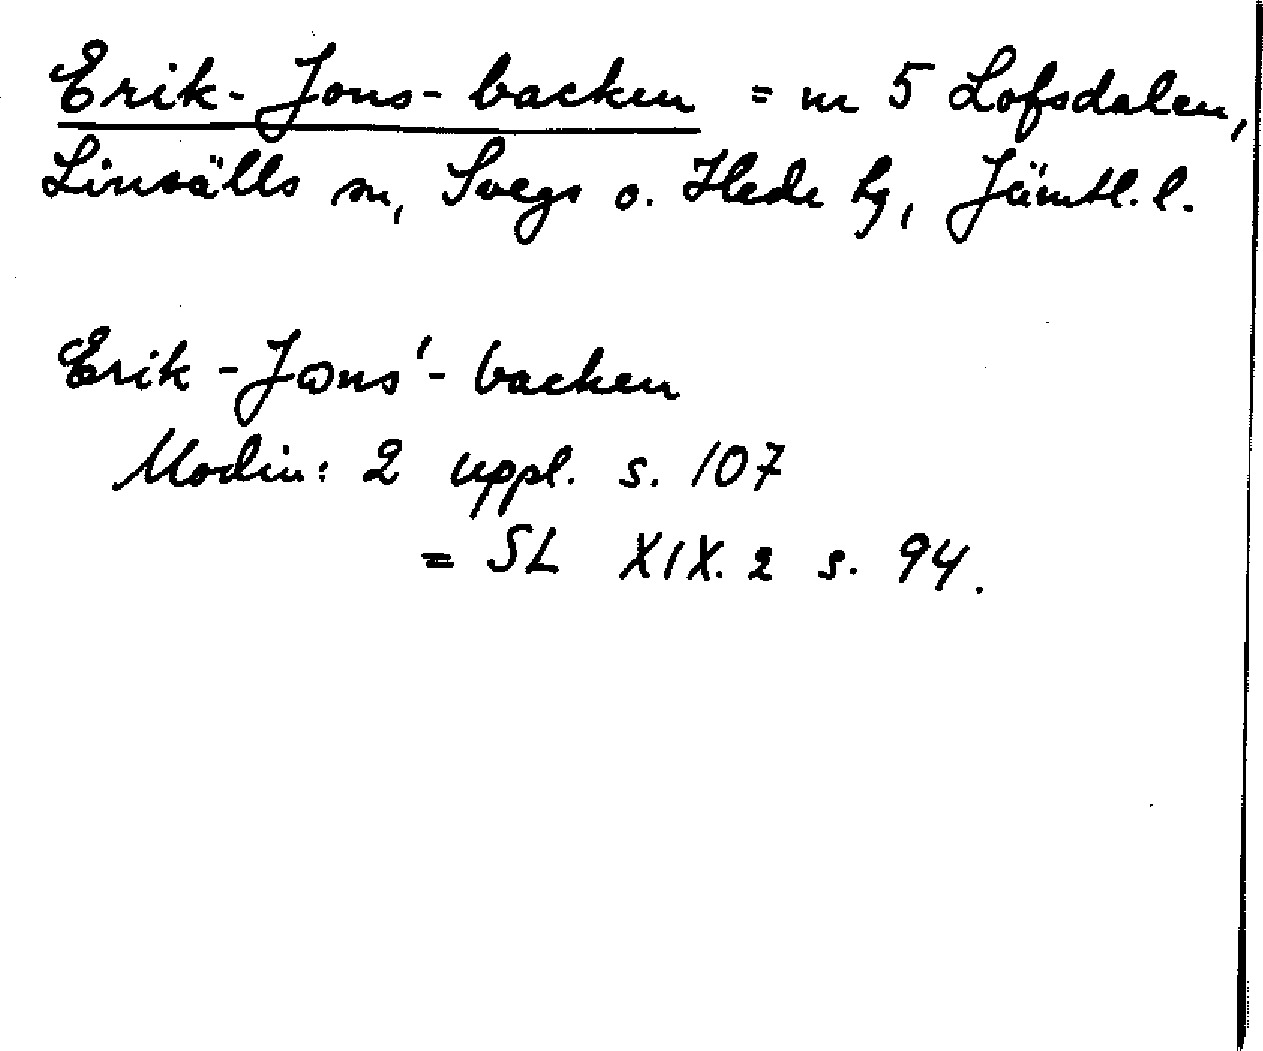 Erik-Jons-backen = nr 5 Lofsdalen,
Linsälls sn, Svegs o. Hede hg, Jämtl. l.
Erik-Jons'-backen
Modin: 2 uppl. s. 107
= SL XIX. 2 s. 94.